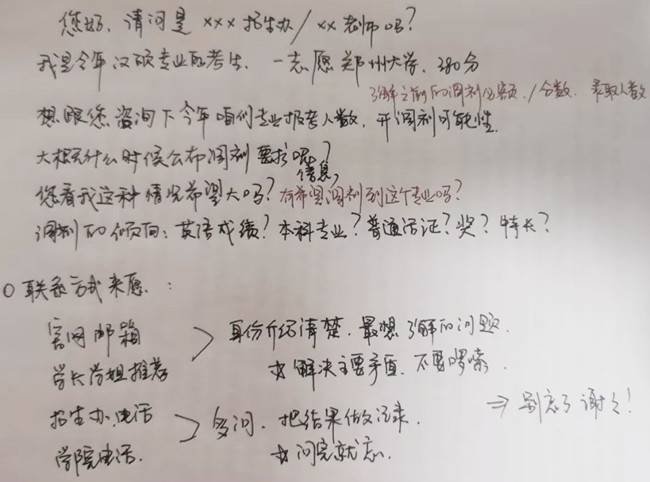 您好，请问是 xxx 招生办/xx 老师吗？
我是今年汉硕专业的考生，一志愿郑州大学，380分
了解之前的调剂名额/分数、录取人数
想跟您咨询下今年咱们专业报考人数，开调剂可能性
大概什么时候公布调剂要求呢？
信息
您看我这种情况希望大吗？有希望调剂到这个专业吗？
调剂的倾向：英语成绩？本科专业？普通话证？奖？特长？
○联系方式来愿：
官网邮箱 > 身份介绍清楚，最想了解的问题.
学长学姐推荐 ☆解决主要矛盾，不要啰嗦.
招生办电话 > 多问，把结果做记录. ⇒ 别忘了谢谢！
学院电话. ☆问完就忘.